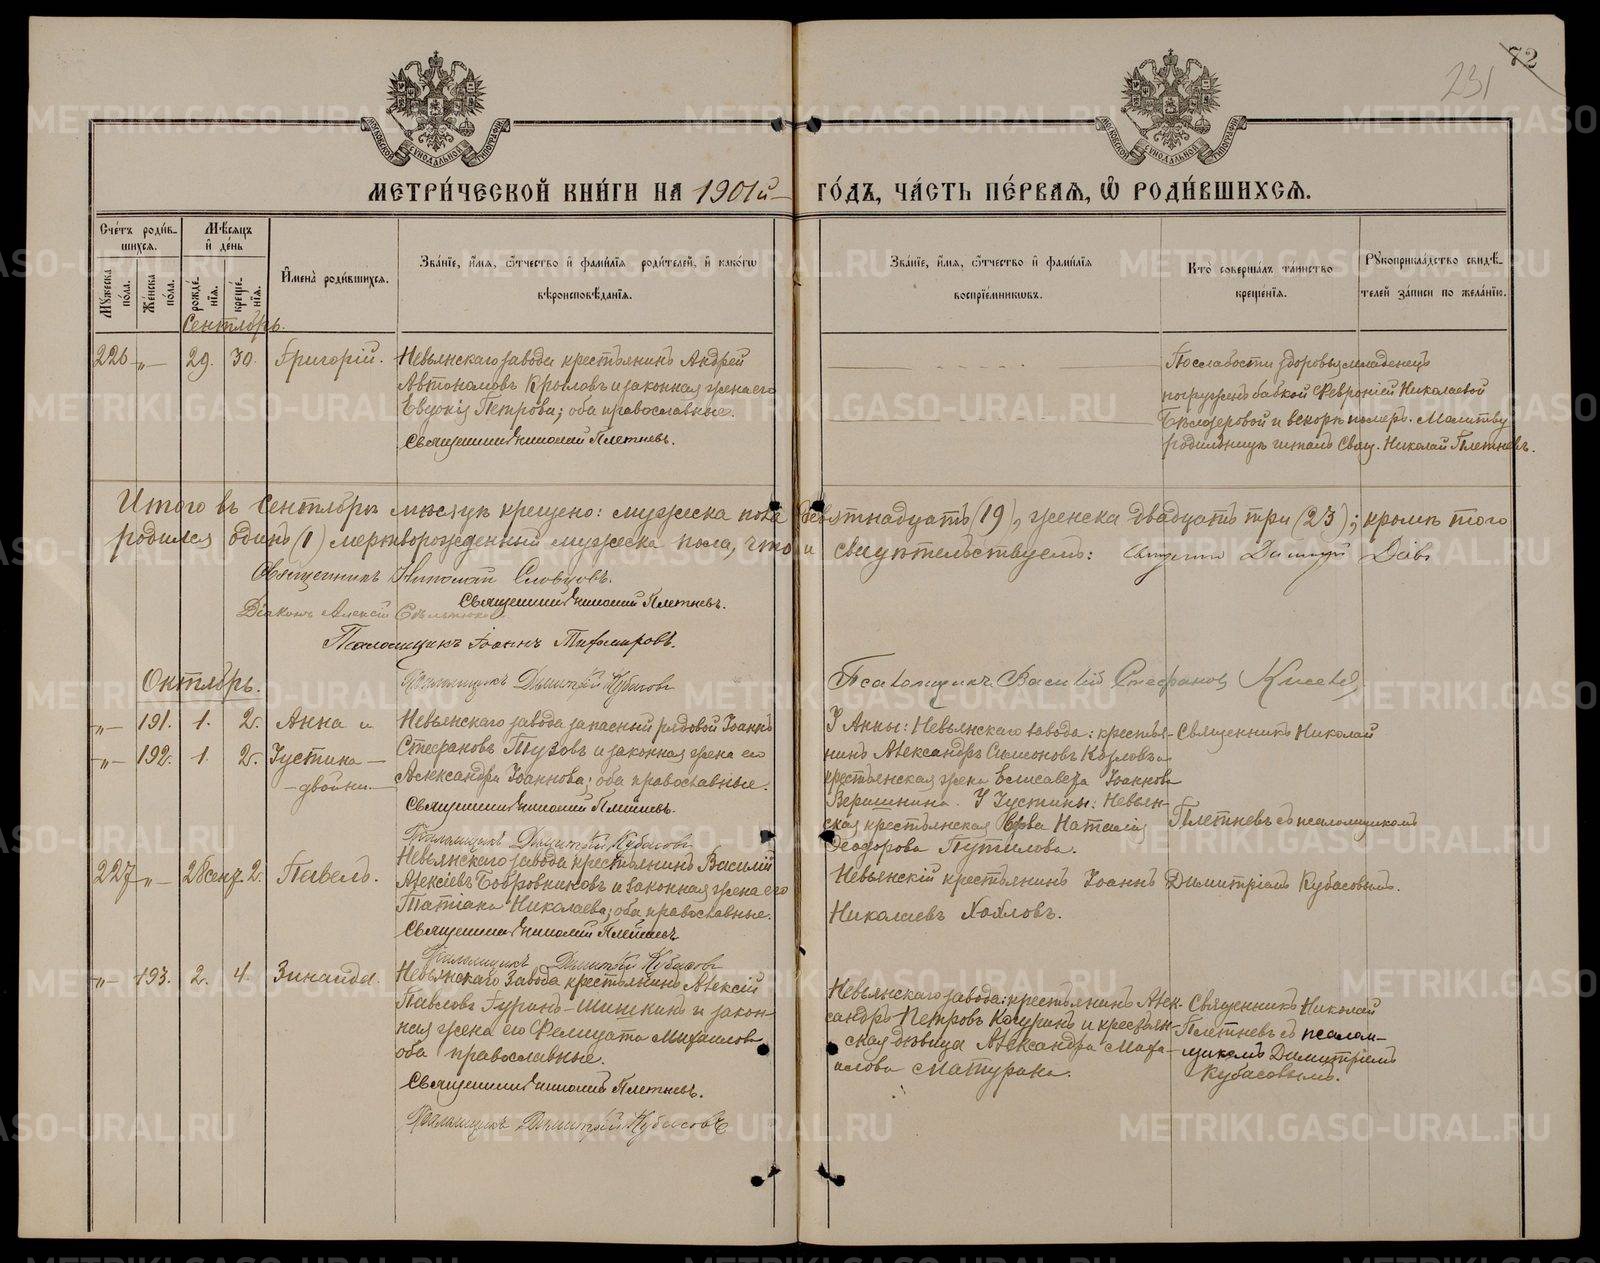 72
231
МЕТРИ́ЧЕСКОЙ КНИ́ГИ НА 1901й ГО́ДЪ, ЧА́СТЬ ПЕ́РВАѦ, Ѽ РОДИ́ВШИХСѦ.
Сче́тъ роди́вшихсѧ.
Мꙋ́жеска по́ла.
Же́нска по́ла.
Мѣ́сѧцъ и҆ де́нь
рожде́нїѧ.
креще́нїѧ.
И҆мена̀ роди́вшихсѧ.
Зва́нїе, и҆́мѧ, ѻ҆́тчество и҆ фами́лїѧ роди́телей, и҆ како́гѡ
вѣроисповѣ́данїѧ.
Зва́нїе, и҆́мѧ, ѻ҆́тчество и҆ фами́лїѧ
воспрїе́мникѡвъ.
Кто̀ соверша́лъ та́инство
креще́нїѧ.
Рꙋкоприкла́дство свидѣ́-
телей за́писи по жела́нїю.
Сентябрь.
226 „ 29. 30. Григорій.
Невьянскаго завода крестьянинъ Андрей
Автономовъ Крыловъ и законная жена его
Евдокія Петрова; оба православные.
Священникъ Николай Плетневъ.
По слабости здоровья младенецъ
погруженъ бабкой Февроніей Николаевой
Бѣлозеровой и вскорѣ померъ. Молитву
родильницѣ читалъ Свящ. Николай Плетневъ.
Итого въ Сентябрѣ мѣсяцѣ крещено: мужеска пола девятнадцать (19), женска двадцать три (23); кромѣ того
родился одинъ (1) мертворожденный мужеска пола, что и свидѣтельствуемъ:
Священникъ Николай Словцовъ.
Священникъ Николай Плетневъ.
Діаконъ Алексій
Псаломщикъ Іоаннъ Тихомировъ.
Псаломщикъ Димитрій Кубасовъ
Псаломщикъ Василій Стефановъ
Октябрь.
„ 191. 1. 2. Анна и
„ 192. 1. 2. Іустина
двойни.
Невьянскаго завода запасный рядовой Іоаннъ
Стефановъ Тузовъ и законная жена его
Александра Іоаннова; оба православные.
Священникъ Николай Плетневъ.
Псаломщикъ Димитрій Кубасовъ
У Анны: Невьянскаго завода: крестья-
нинъ Александръ Симеоновъ Козловъ и
крестьянская жена Елисавета Іоаннова
Вершинина. У Іустины: Невьян-
ская крестьянская вдова Наталія
Ѳеодорова Путилова.
Священникъ Николай
Плетневъ съ псаломщикомъ
Димитріемъ Кубасовымъ.
227 „ 28 сент. 2. Павелъ.
Невьянскаго завода крестьянинъ Василій
Алексіевъ Бобровниковъ и законная жена его
Татіана Николаева; оба православные.
Священникъ Николай Плетневъ
Псаломщикъ Димитрій Кубасовъ
Невьянскій крестьянинъ Іоаннъ
Николаевъ Хохловъ.
„ 193. 2. 4. Зинаида.
Невьянскаго Завода крестьянинъ Алексій
Павловъ Гуринъ-Шишкинъ и закон-
ная жена его Фелицата Михаилова
оба православные.
Священникъ Николай Плетневъ.
Псаломщикъ Димитрій Кубасовъ
Невьянскаго завода: крестьянинъ Алек-
сандръ Петровъ Кочуринъ и крестьян-
ская дѣвица Александра Миха-
илова Матурина.
Священникъ Николай
Плетневъ съ псалом-
щикомъ Димитріемъ
Кубасовымъ.